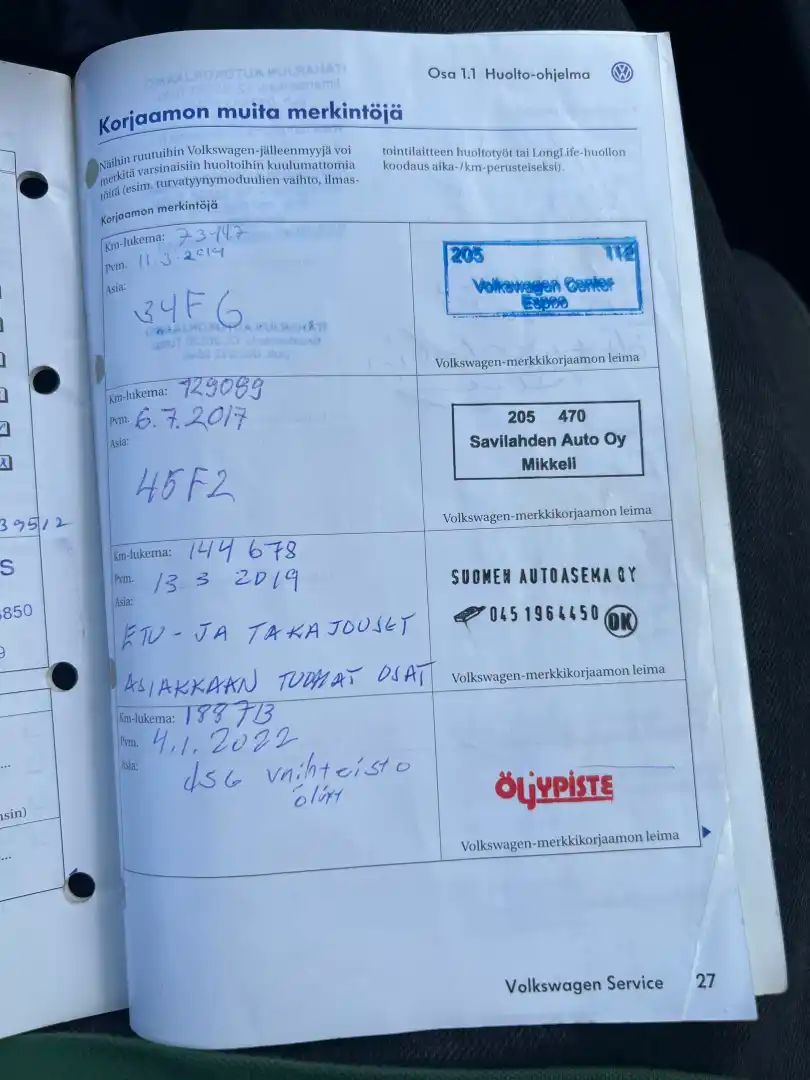 Osa 1.1 Huolto-ohjelma
Korjaamon muita merkintöjä
Näihin ruutuihin Volkswagen-jälleenmyyjä voi
merkitä varsinaisiin huoltoihin kuulumattomia
töitä (esim. turvatyynymoduulien vaihto, ilmas-
tointilaitteen huoltotyöt tai LongLife-huollon
koodaus aika-/km-perusteiseksi).
Korjaamon merkintöjä
Km-lukema: 73147
Pvm. 11.3.2014
Asia:
34F6
205 112
Volkswagen Center
Espoo
Volkswagen-merkkikorjaamon leima
Km-lukema: 129089
Pvm. 6.7.2017
Asia:
45F2
205 470
Savilahden Auto Oy
Mikkeli
Volkswagen-merkkikorjaamon leima
Km-lukema: 144 678
Pvm. 13 3 2019
Asia:
ETU- JA TAKAJOUSET
ASIAKKAAN TUOMAT OSAT
SUOMEN AUTOASEMA OY
045 1964450 OK
Volkswagen-merkkikorjaamon leima
Km-lukema: 188713
Pvm. 4.1.2022
Asia:
dsg vaihteisto
öljyt
ÖLJYPISTE
Volkswagen-merkkikorjaamon leima
Volkswagen Service 27
39512
S
6850
9